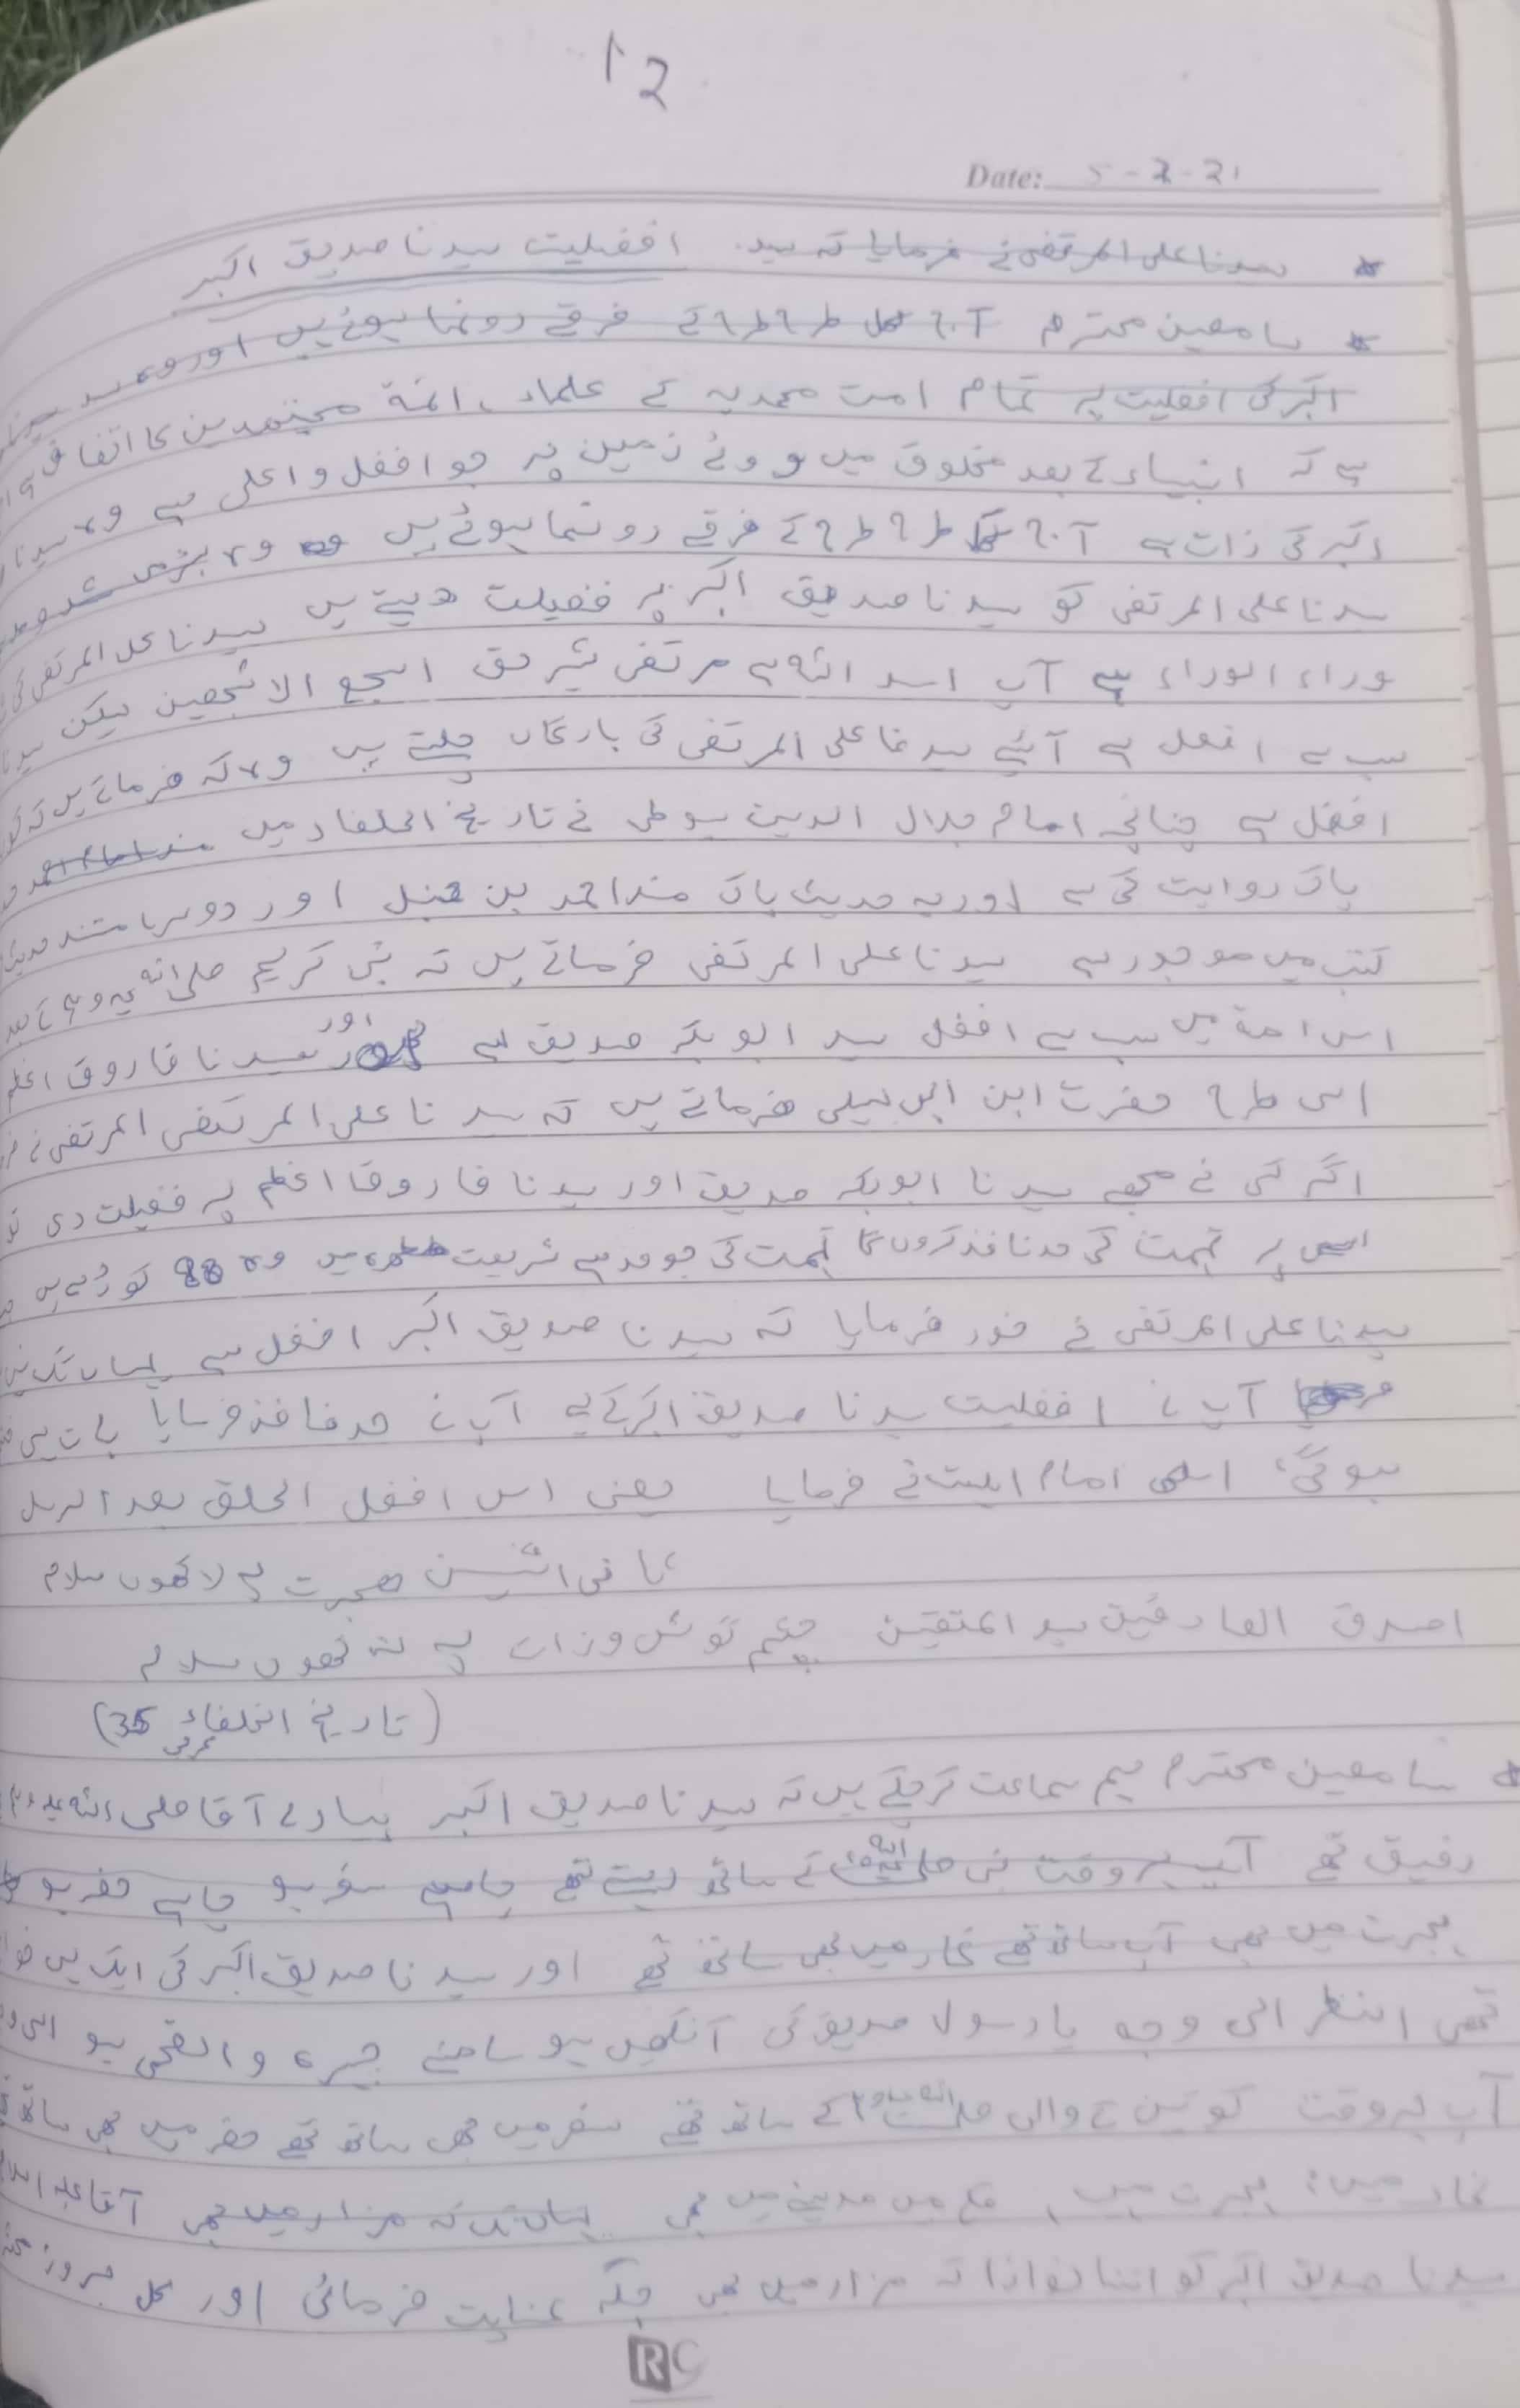 12
Date: 5-2-21
* سیدنا علی المرتضی نے فرمایا کہ سید افضلیت سیدنا صدیق اکبر
* سامعین محترم آج کل طرح طرح کے فرقے رونما ہوئے ہیں اور وہ
اکبر کی افضلیت پر تمام امت محمدیہ کے علماء، ائمۃ مجتھدین کا اتفاق
ہے کہ انبیاء کے بعد مخلوق میں روئے زمین پر جو افضل و اعلی ہے وہ سیدنا
اکبر کی ذات ہے آج کل طرح طرح کے فرقے رونما ہوئے ہیں وہ بڑی
سیدنا علی المرتضی کو سیدنا صدیق اکبر پر فضیلت دیتے ہیں سیدنا علی المرتضی کی
وراء الوراء ہے آپ اسد اللہ ہے مرتضی شیر حق اشجع الاشجعین لیکن
سب سے افضل ہے آئیے سیدنا علی المرتضی کی بارگاہ چلتے ہیں وہ کہ فرماتے ہیں کہ
افضل ہے چنانچہ امام جلال الدین سیوطی نے تاریخ الخلفاء میں مسند امام احمد
پاک روایت کی ہے اور یہ حدیث پاک مسند احمد بن حنبل اور دوسرا مستند حدیث
کتب میں موجود ہے سیدنا علی المرتضی فرماتے ہیں کہ نبی کریم صلی اللہ علیہ وسلم کے بعد
اس امۃ میں سب سے افضل سید ابو بکر صدیق ہے اور سیدنا فاروق اعظم
اسی طرح حضرت ابن ابی لیلی فرماتے ہیں کہ سیدنا علی المرتضی المرتضی نے
اگر کسی نے مجھے سیدنا ابوبکر صدیق اور سیدنا فاروق اعظم پر فضیلت دی تو
اس پر تہمت کی حد نافذ کروں گا تہمت کی جو حد ہے شریعت میں وہ 80 کوڑے ہیں
سیدنا علی المرتضی نے خود فرمایا کہ سیدنا صدیق اکبر افضل ہے یہاں تک
آپ نے افضلیت سیدنا صدیق اکبر کے لیے آپ نے حد نافذ فرمایا بات
ہو گئی، امام اہلسنت نے فرمایا یعنی اس افضل الخلق بعد الرسل
ثانی اثنین ھجرت پہ لاکھوں سلام
اصدق الصادقین سید المتقین چشم گوش وزارت پہ لاکھوں سلام
(تاریخ الخلفاء عربی 35)
* سامعین محترم ہم سماعت کر چکے ہیں کہ سیدنا صدیق اکبر ہمارے آقا صلی اللہ علیہ وسلم
رفیق تھے آپ ہر وقت نبی صلی اللہ علیہ کے ساتھ رہتے تھے چاہے سفر ہو چاہے حضر ہو
ہجرت میں بھی آپ ساتھ تھے غار میں بھی ساتھ تھے اور سیدنا صدیق اکبر کی ایک ہی
تھی النظر الی وجہ یا رسول صدیق کی آنکھیں ہو سامنے چہرہ والضحی ہو
آپ ہر وقت کونین کے والی صلی اللہ علیہ کے ساتھ تھے سفر میں بھی ساتھ تھے حضر میں بھی ساتھ
غار میں، ہجرت میں، مکے میں مدینے میں بھی یہاں تک کہ مزار میں بھی آقا علیہ السلام
سیدنا صدیق اکبر کو اتنا نوازا کہ مزار میں بھی جگہ عنایت فرمائی اور کل بروز
RC